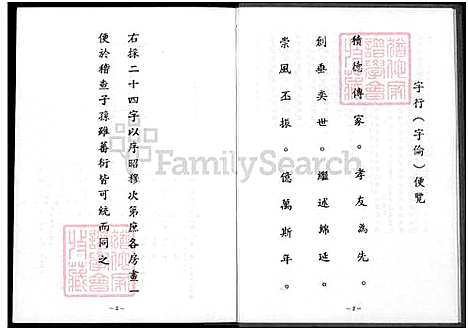 字行(字倫)便覽
積德傳家。孝友為先。
創垂奕世。繼述綿延。
崇風丕振。億萬斯年。
右採二十四字以序昭穆次第庶各房畫一
便於稽查子孫雖蕃衍皆可統而同之
-2-
-2-
FamilySearch